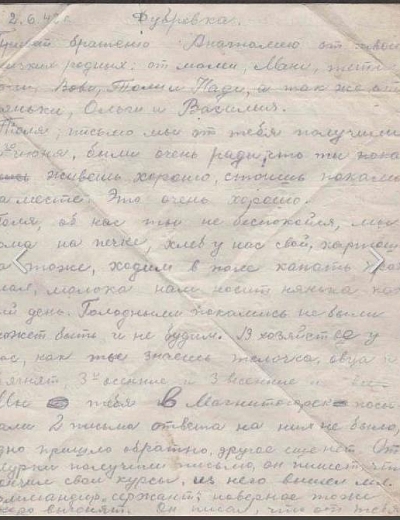 2.6.42г Дубровка.
Привет братено Анатолию от твоих
родных: от мамы, Мани, тёти
Вовы, Толи и Нади, и так же от
няньки, Ольги и Василия.
Толя, письмо мы от тебя получили
июня, были очень рады, что ты пока
живёшь хорошо, стоишь пока на
на месте. Это очень хорошо.
Толя, об нас ты не беспокойся, мы
дома на печке, хлеб у нас свой, картош
ка тоже, ходим в поле копать
молока нам носит нянька каж
ый день. Голодными покамись не были
может быть и не будим. В хозяйстве у
ас, как ты знаешь телочка, овца и
ягнят, 3 осение и 3 весение и
Мы тебя в Магнитогорск пос
лали 2 письма ответа на них не было,
одно пришло обратно, другое ещё нет. От
получили письмо, он пишет что
кончил свои курсы, из него вышел мл.
командир, сержант; наверное тоже
скоро выгонят. Он писал, что от тебя